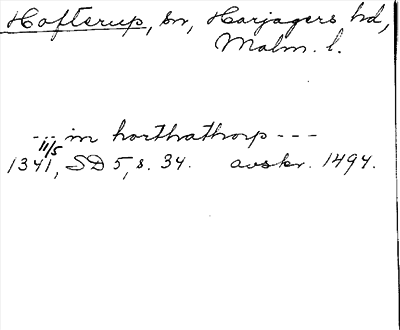 Hofterup, sn, Harjagers hd,
Malm. l.
--- in horthathorp ---
11/5
1341, SD 5, s. 34. avskr. 1494.